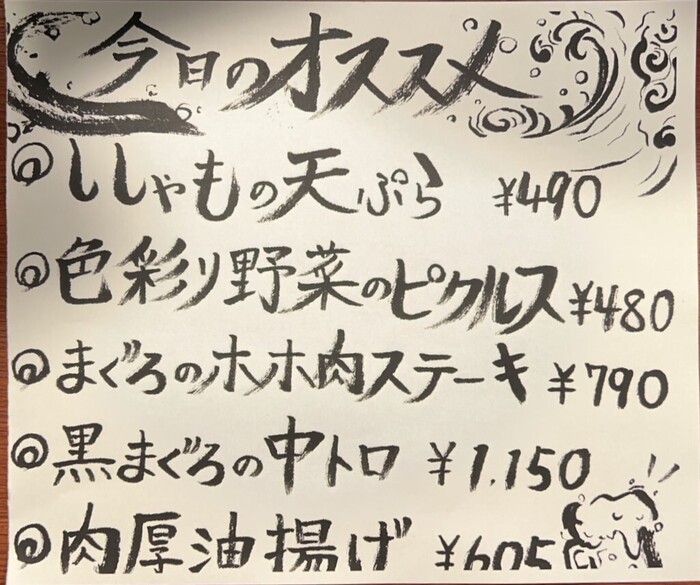 今日のオススメ
ししゃもの天ぷら ¥490
色彩り野菜のピクルス ¥480
まぐろのホホ肉ステーキ ¥790
黒まぐろの中トロ ¥1,150
肉厚油揚げ ¥605